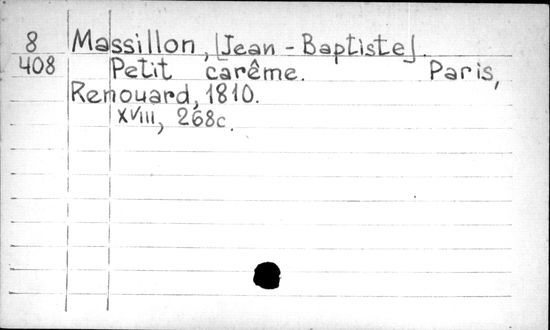 8 Massillon, [Jean - Baptiste].
408 Petit carême. Paris,
Renouard, 1810.
XVIII, 268c.